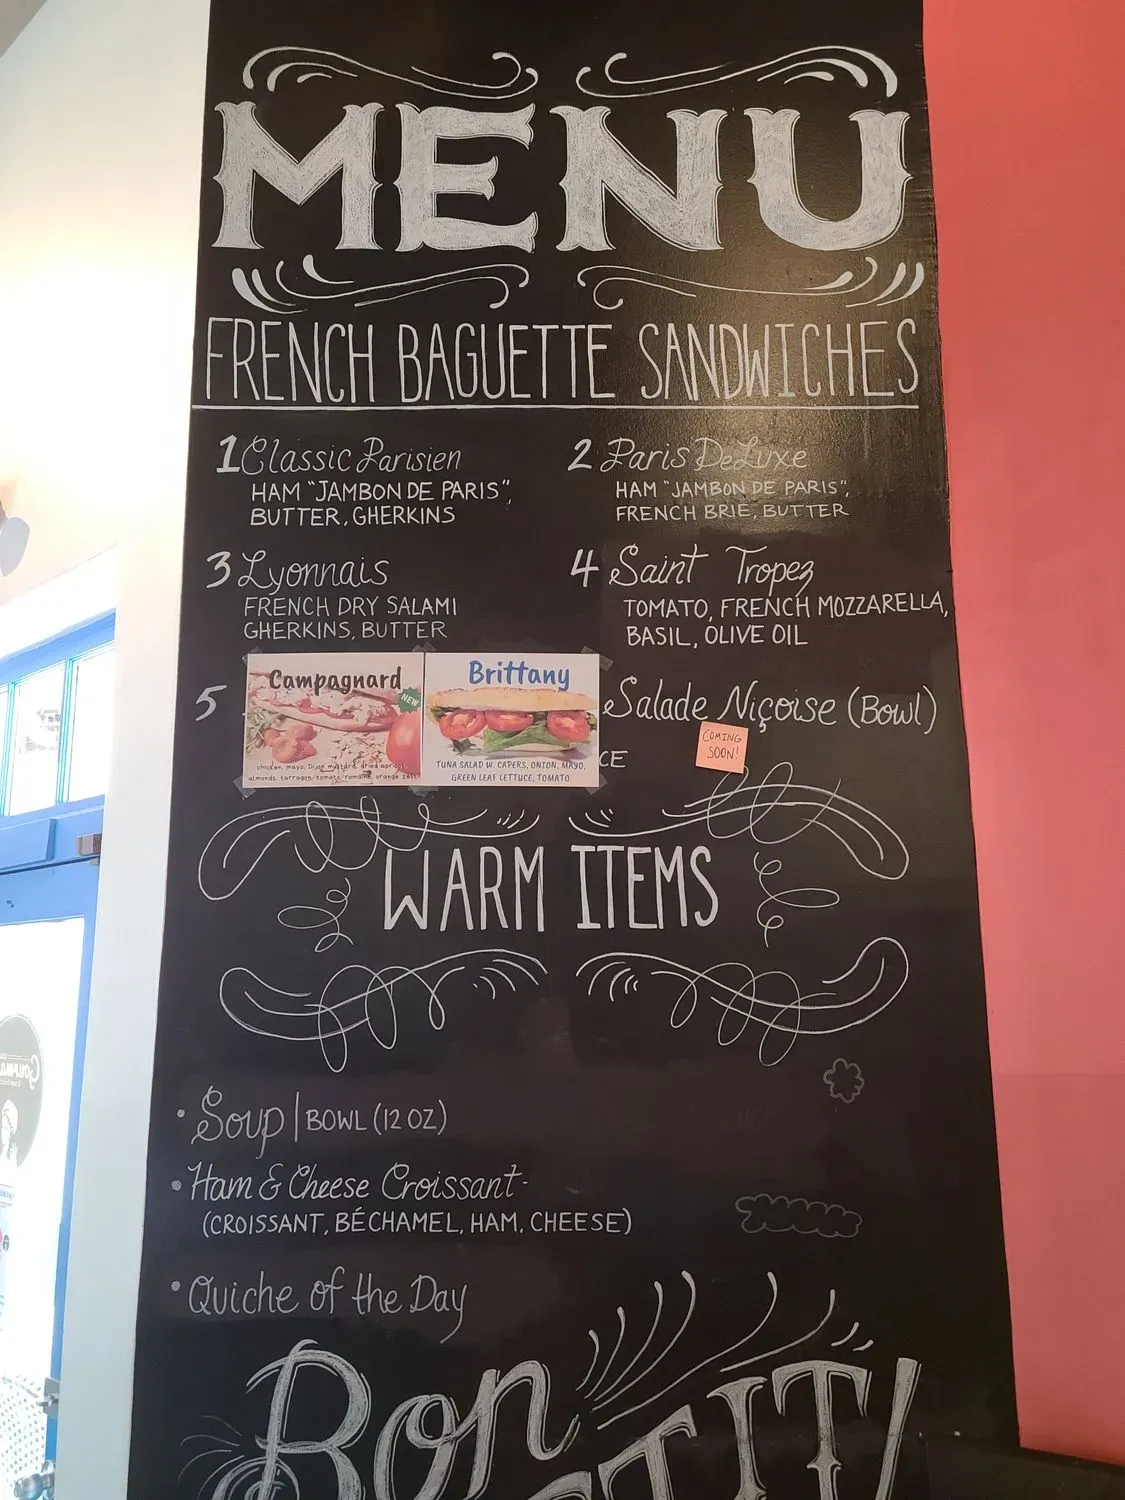 MENU
FRENCH BAGUETTE SANDWICHES
1 Classic Parisien
HAM "JAMBON DE PARIS",
BUTTER, GHERKINS
2 Paris DeLuxe
HAM "JAMBON DE PARIS",
FRENCH BRIE, BUTTER
3 Lyonnais
FRENCH DRY SALAMI
GHERKINS, BUTTER
4 Saint Tropez
TOMATO, FRENCH MOZZARELLA,
BASIL, OLIVE OIL
5
Campagnard
NEW
chicken, mayo, Dijon mustard, dried apricot,
almonds, tarragon, tomato, romaine, orange zest
Brittany
TUNA SALAD W. CAPERS, ONION, MAYO,
GREEN LEAF LETTUCE, TOMATO
Salade Niçoise (Bowl)
CE
COMING
SOON!
WARM ITEMS
• Soup | BOWL (12 OZ)
• Ham & Cheese Croissant-
(CROISSANT, BÉCHAMEL, HAM, CHEESE)
• Quiche of the Day
Bon